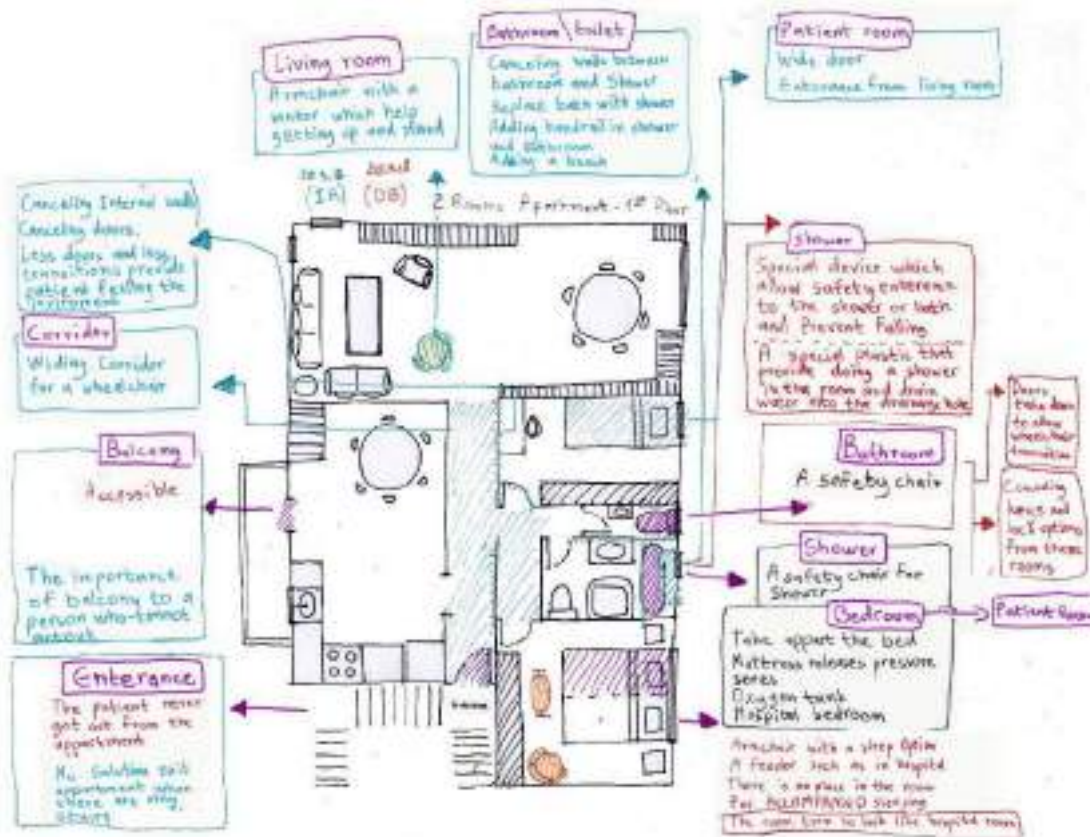 Living room
Armchair with a
motor which help
getting up and stand
Bathroom\toilet
Canceling walls between
bathroom and Shower
Replace bath with shower
Adding handrail in shower
and bathroom
Adding a bench
Patient room
Wide door
Enterance from living room
(IA) (DB)
2 Rooms Apartment - 1st Floor
Canceling Internal walls
Canceling doors.
Less doors and less
transitions provide
patient feeling the
Corridor
Widing Corridor
for a wheelchair
Balcony
Accessible
The importance
of balcony to a
person who cannot
Enterance
The patient never
got out from the
appartment
No Solution
appartment when
there are
stairs
Shower
Special device which
allow safety enterence
to the shower or bath
and Prevent Falling
A special plastic that
provide doing a shower
in the room and drain
water into the drainage hole
Doors
to allow
wheelchair
Bathroom
A safety chair
Canceling
and
lock options
from these
rooms
Shower
A safety chair For
Shower
Bedroom
Patient Room
Take appart the bed
Mattress releases pressure
Oxygen tank
Hospital bedroom
Armchair with a sleep Option
A feeder such as in hospital
There is no place in the room
For sleeping
The room turn to look like hospital room